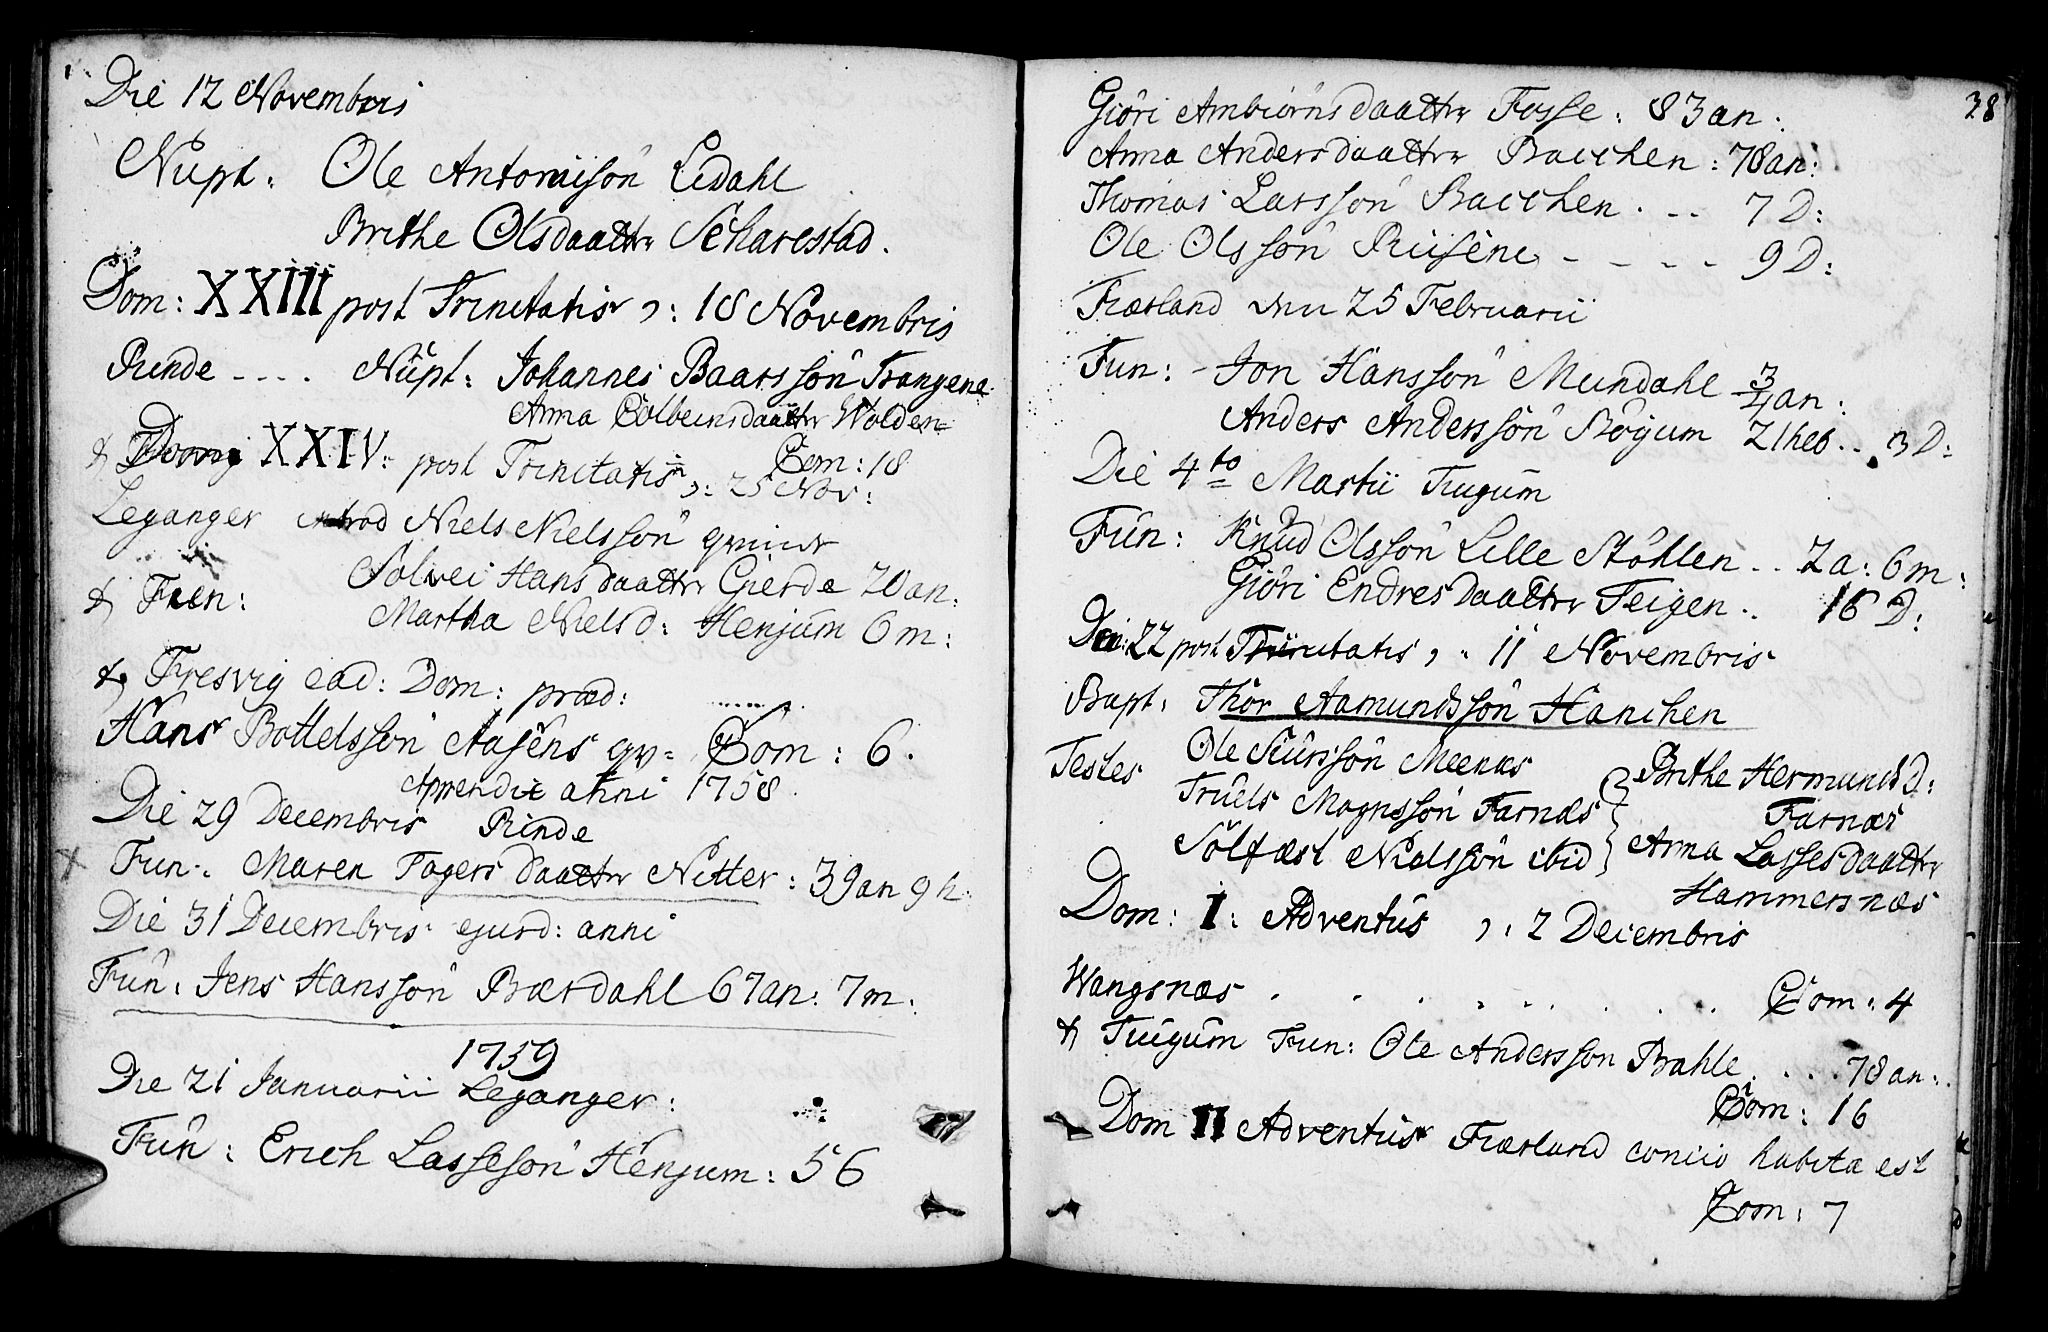 Die 12 Novembris
Nupt. Ole Antonisön Lidahl
Brithe Olsdaattr Scharestad.
Dom: XXIII post Trinitatis ɔ: 18 Novembris
Rinde .... Nupt: Johannes Baarssön Trangene
Anna Colbeinsdaattr Wolden
Com: 18
& Dom XXIV: post Trinitatis ɔ: 25 Nov:
Leganger introd Niels Nielssön qvinde
& Fun: Solvei Hansdaattr Gierde 20 an.
Martha Niels D: Henjum 6 m:
& Fresvig ead: Dom: præd:
Hans Bottelssön Aasens qv= Com: 6.
Appendix anni 1758.
Die 29 Decembris Rinde
Fun: Maren Togersdaattr Nitter: 39 an 9 h
Die 31 Decembris ejusd: anni
Fun: Jens Hanssön Bærdahl 67 an: 7 m:
1759
Die 21 Januarii Leganger:
Fun: Erich Lassesön Henjum: 56
38
Giöri Ambiörnsdaattr Fosse: 83 an:
Anna Andersdaattr Bacchen: 78 an:
Thomas Larssön Bacchen . -- 7 D:
Ole Olssön Rusene - - - - - 9 D:
Fiærland den 25 Februarii
Fun: - Jon Hanssön Mundahl 3/4 an:
Anders Anderssön Bögum 21 heb .. 3 D:
Die 4to Martii Tiugum
Fun: Knud Olssön Lille Stöhlen .. 2 a: 6 m:
Giöri Endresdaattr Feigen .. 16 D:
Dom: 22 post Trinitatis, ɔ: 11 Novembris
Bapt. Thor Aamundssön Hanchen
Testes Ole Siurssön Meenæs
Truels Magnssön Farnæs
Sölfæst Nielssön ibid
Brithe Hermunds D:
Farnæs
Anna Lassesdaattr
Hammersnæs
Dom: I: Adventus ɔ: 2 Decembris
Wangsnæs . . . . . . . . Com: 4
& Tiugum Fun: Ole Anderssön Bahle . . . 78 an:
Com: 16
Dom II Adventus Fiærland concio habita est
Com: 7